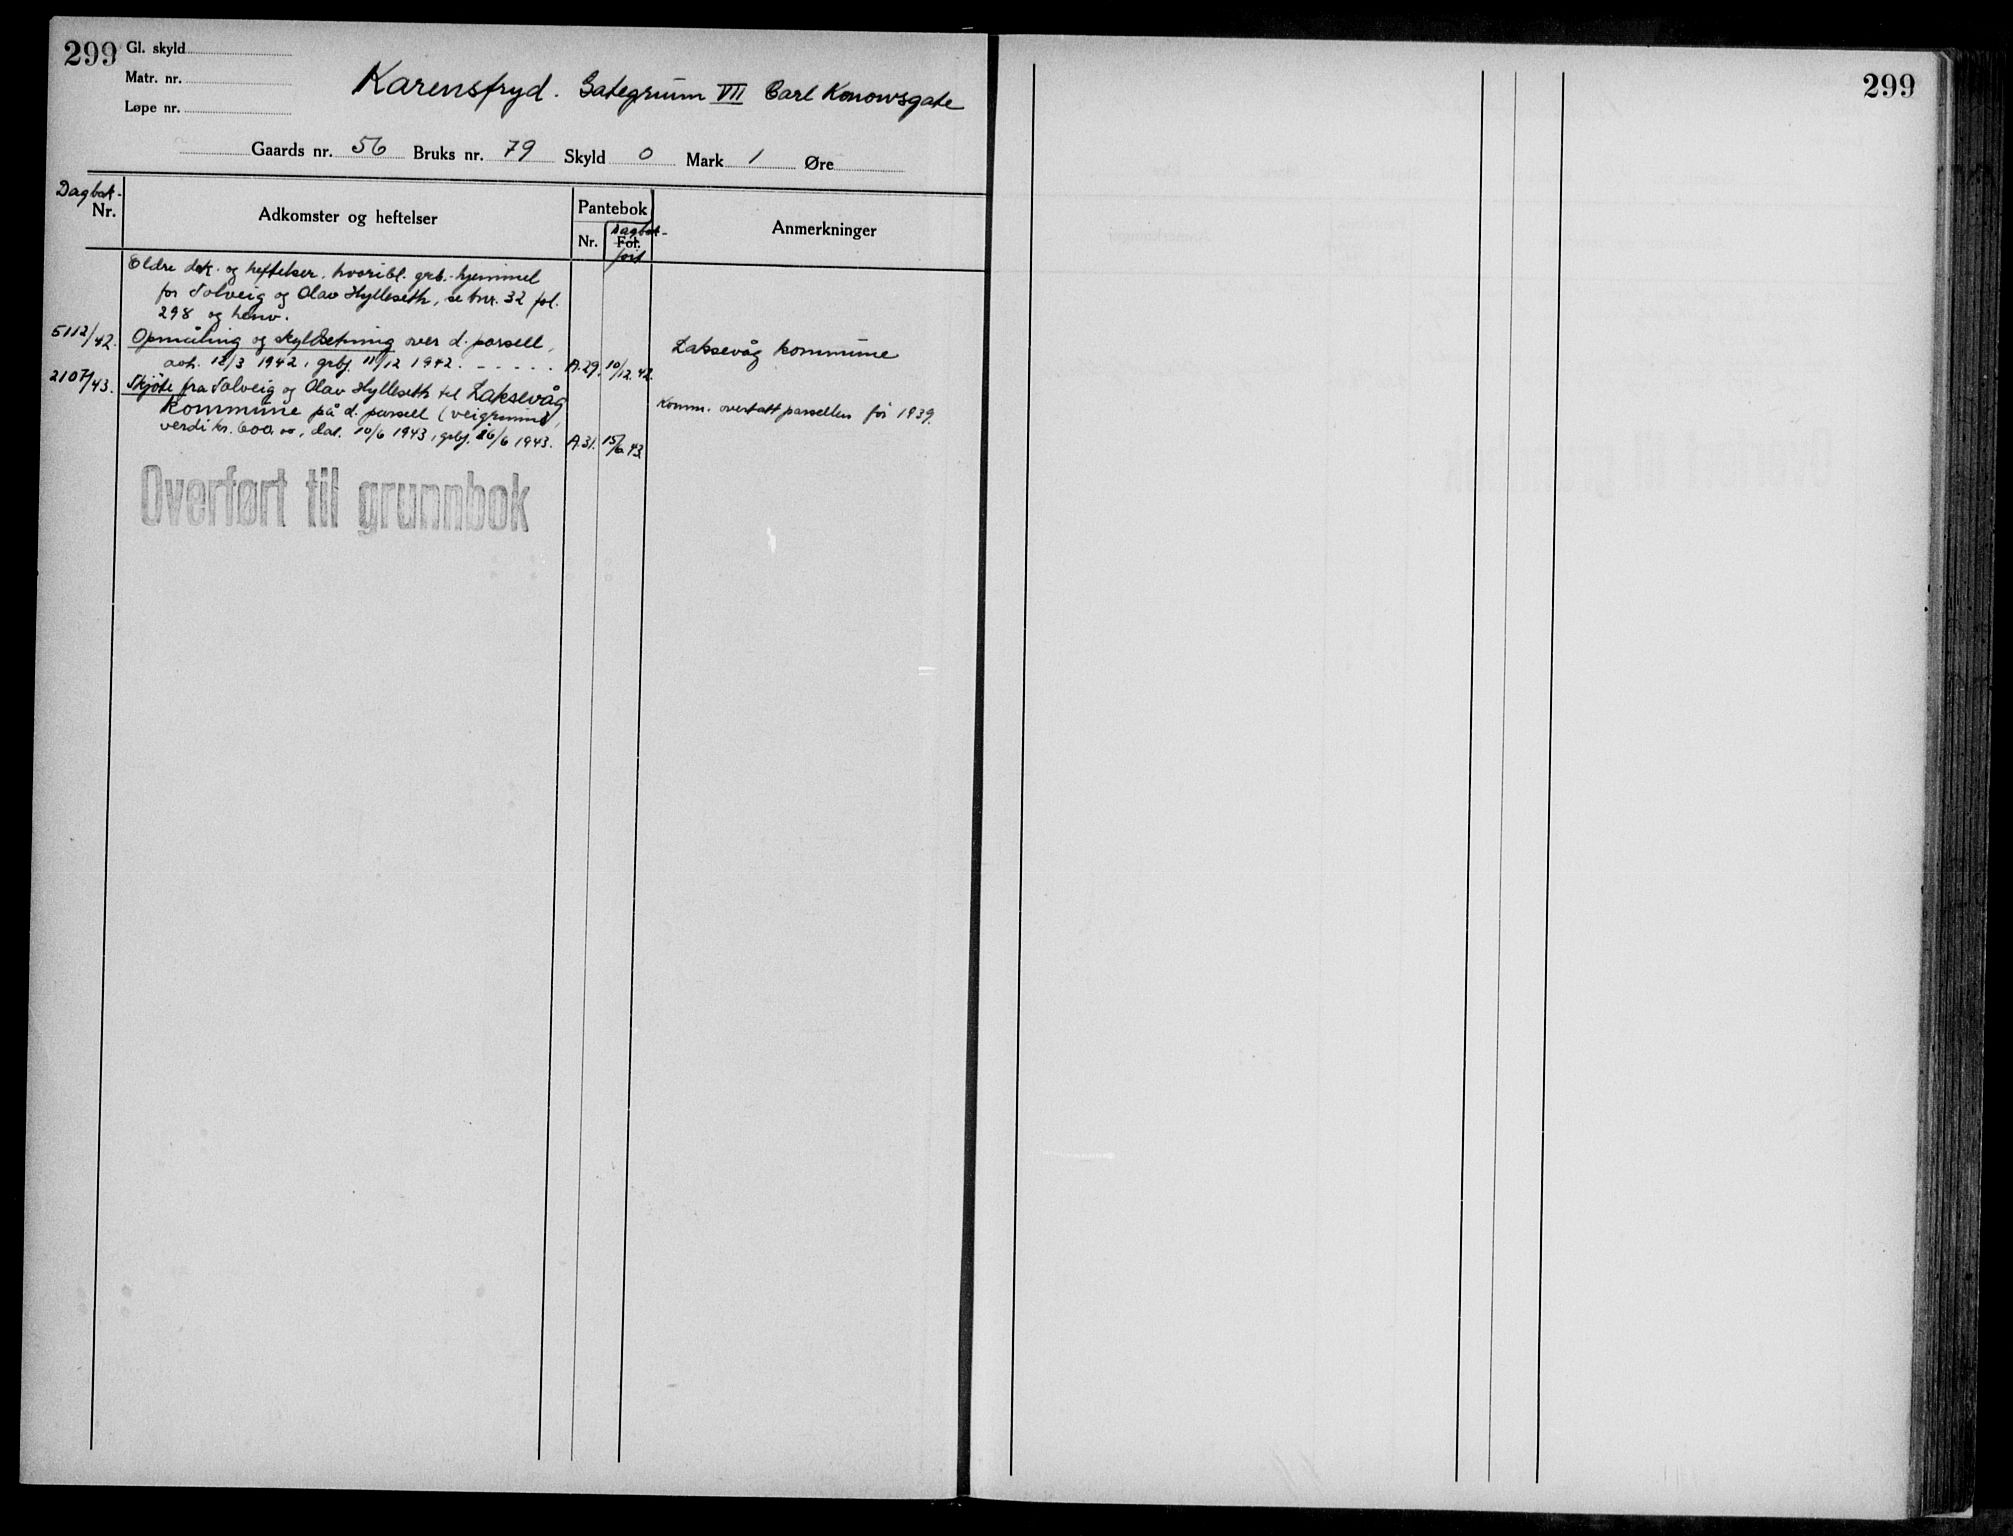 299
Gl. skyld
Matr. nr.
Løpe nr.
Karensfryd. Gategrunn VII Carl Konowsgate
Gaards nr. 56 Bruks nr. 79 Skyld 0 Mark 1 Øre
Dagbok-
Nr.
Adkomster og heftelser
Pantebok
Nr.
Dagbok-
Fol.
ført
Anmerkninger
Eldre dok. og heftelser, hvoribl. grb.-hjemmel
for Solveig og Olav Hylleseth, se bnr. 32 fol.
298 og henv.
5112/42. Opmåling og skyldsetning over d. parsell,
avh. 12/3 1942, grbj. 11/12 1942. - - - - - A.29. 10/12.42.
Laksevåg kommune
2107/43. Skjöte fra Solveig og Olav Hylleseth til Laksevåg
kommune på d. parsell (veigrunn),
verdi kr. 600.00, dat. 10/6 1943, grbj. 26/6 1943. A.31. 15/6.43.
Komm. overtatt parsellen før 1939.
Overført til grunnbok
299